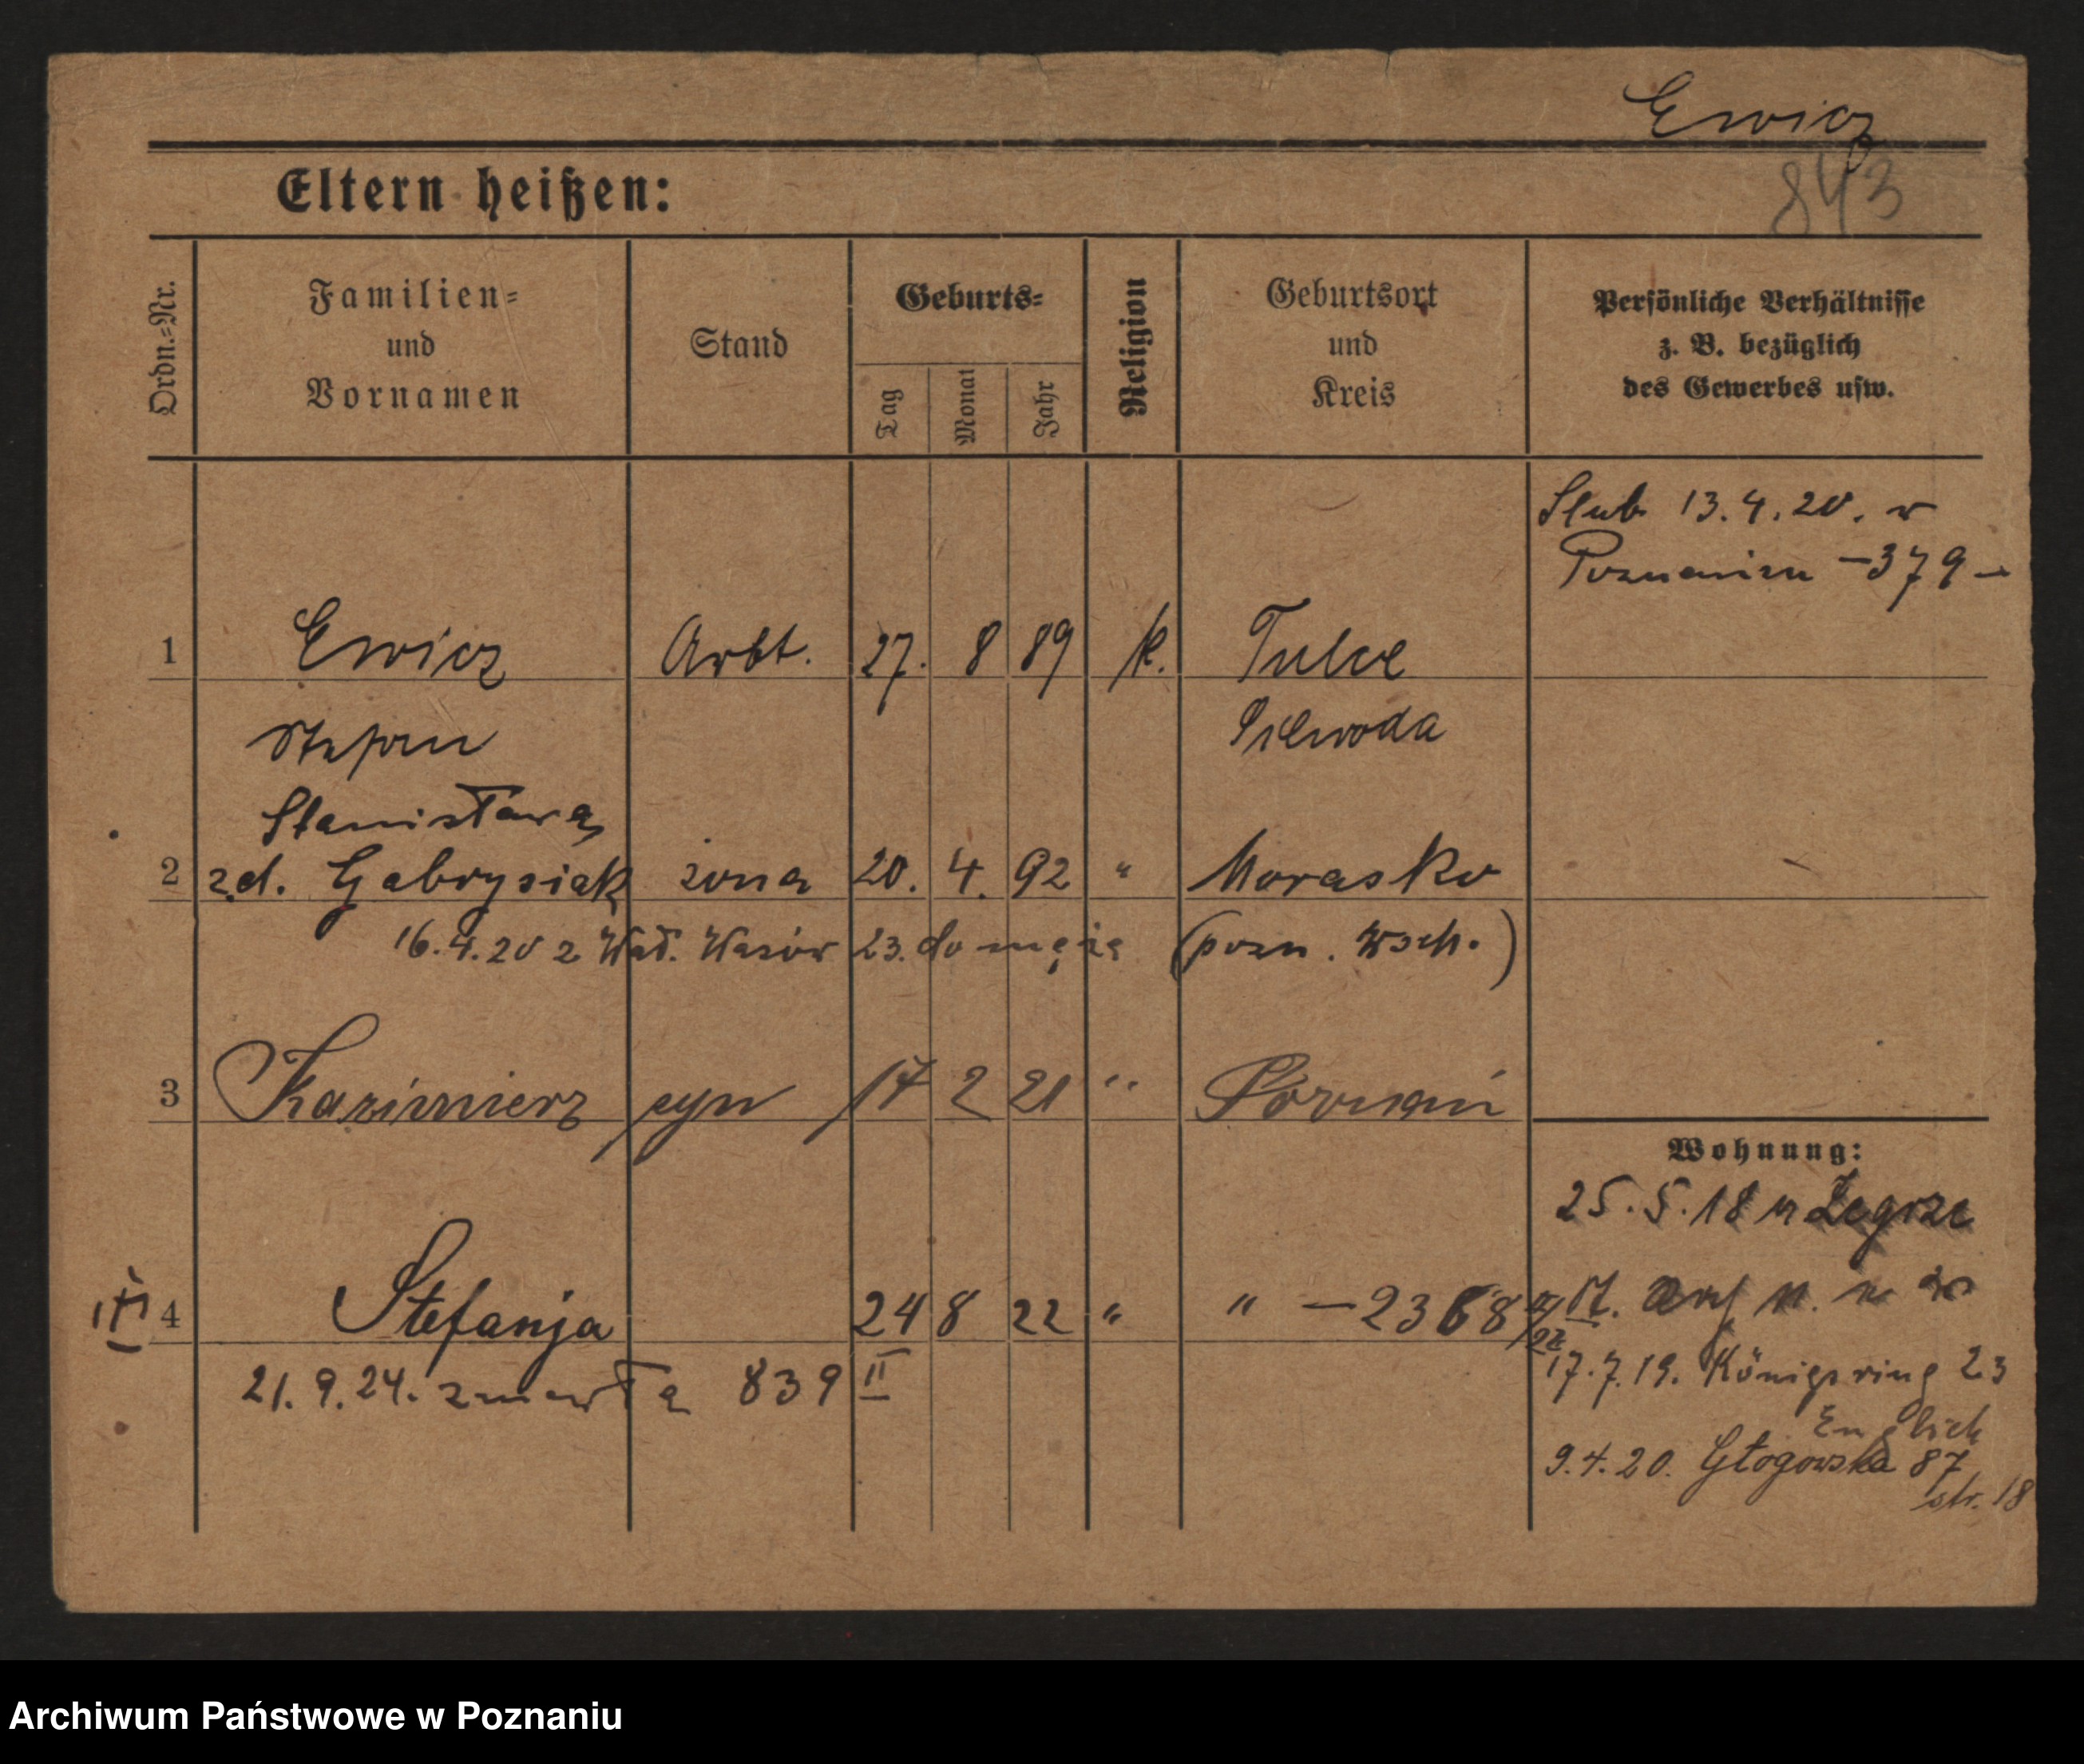 Ewicz
843
Eltern heißen:
Ordn.-Nr.
Familien-
und
Vornamen
Stand
Geburts-
Tag
Monat
Jahr
Religion
Geburtsort
und
Kreis
Persönliche Verhältnisse
z. B. bezüglich
des Gewerbes usw.
Slub 13.4.20. w
Poznaniu –379–
1 Ewicz Arbt. 27. 8 89 k. Tulce
Stefan Schroda
Stanisława
2 zd. Gabrysiak żona 20. 4. 92 " Morasko
16.4.20 z Wad. Wazów 23. do męża (pozn. Wsch.)
3 Kazimierz syn 17 2 21 " Poznań
Wohnung:
25.5.18 n Zegrze
4 Stefanja 24 8 22 " " –2368
17.7.19. Königsring 23
21.9.24. zmarła 839 II
Englich
9.4.20. Głogowska 87
str. 18
Archiwum Państwowe w Poznaniu